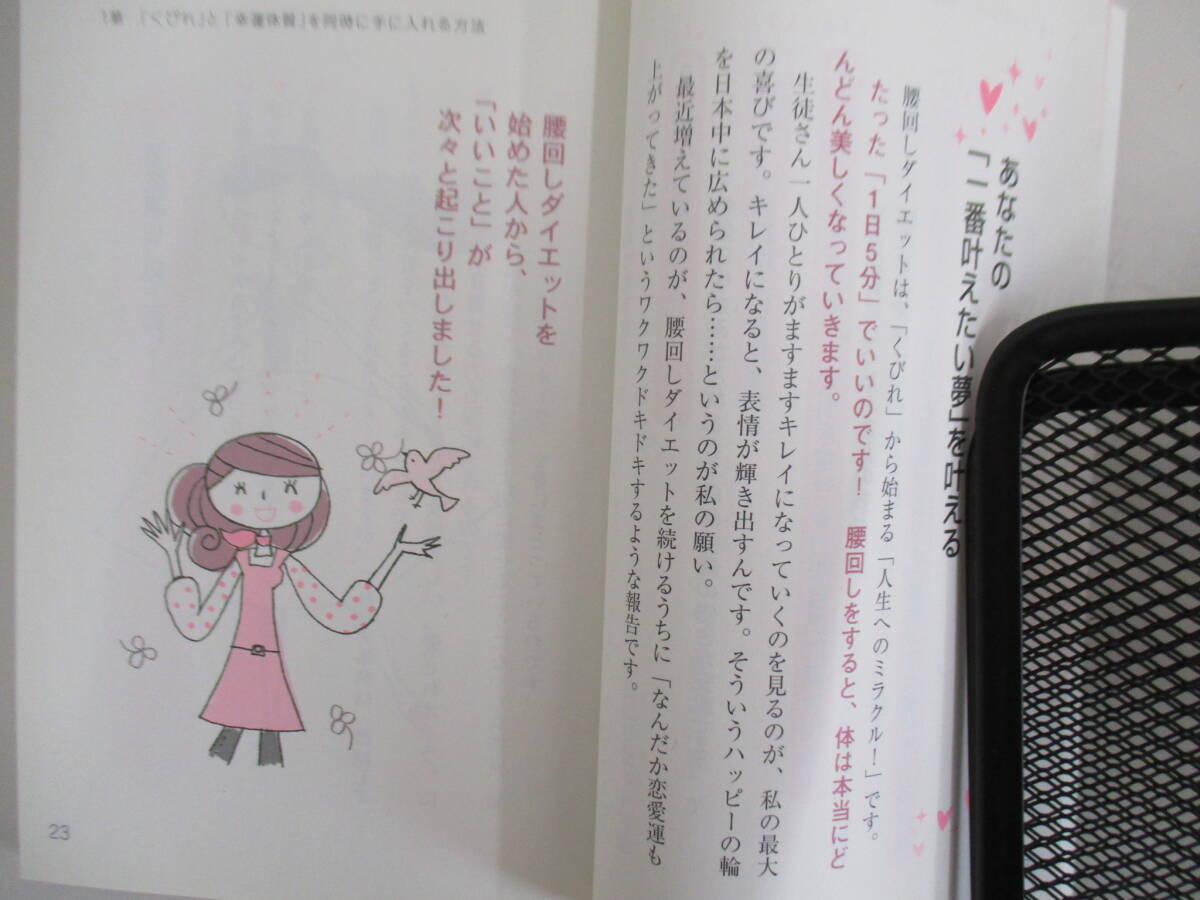 あなたの
「一番叶えたい夢」を叶える
腰回しダイエットは、「くびれ」から始まる「人生へのミラクル！」です。
たった「1日5分」でいいのです！　腰回しをすると、体は本当にど
んどん美しくなっていきます。
生徒さん一人ひとりがますますキレイになっていくのを見るのが、私の最大
の喜びです。キレイになると、表情が輝き出すんです。そういうハッピーの輪
を日本中に広められたら……というのが私の願い。
最近増えているのが、腰回しダイエットを続けるうちに「なんだか恋愛運も
上がってきた」というワクワクドキドキするような報告です。
1章　「くびれ」と「幸運体質」を同時に手に入れる方法
腰回しダイエットを
始めた人から、
「いいこと」が
次々と起こり出しました！
23